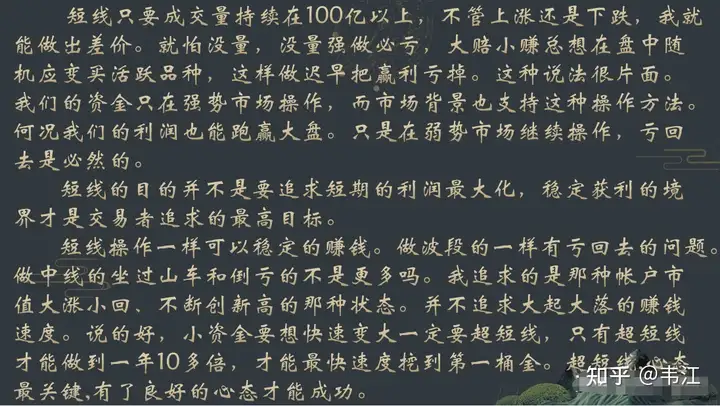 短线只要成交量持续在100亿以上，不管上涨还是下跌，我就
能做出差价。就怕没量，没量强做必亏，大赔小赚总想在盘中随
机应变买活跃品种，这样做迟早把赢利亏掉。这种说法很片面。
我们的资金只在强势市场操作，而市场背景也支持这种操作方法。
何况我们的利润也能跑赢大盘。只是在弱势市场继续操作，亏回
去是必然的。
短线的目的并不是要追求短期的利润最大化，稳定获利的境
界才是交易者追求的最高目标。
短线操作一样可以稳定的赚钱。做波段的一样有亏回去的问题。
做中线的坐过山车和倒亏的不是更多吗。我追求的是那种帐户市
值大涨小回、不断创新高的那种状态。并不追求大起大落的赚钱
速度。说的好，小资金要想快速变大一定要超短线，只有超短线
才能做到一年10多倍，才能最快速度挖到第一桶金。超短线心态
最关键,有了良好的心态才能成功。
知乎 @韦江